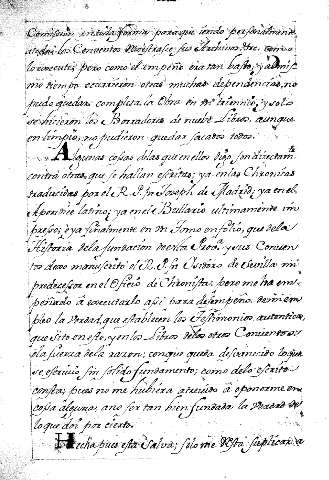 Comission en toda forma para que iendo personalmente
a todos los Conventos registrase sus Archivos &c. como
lo executé; pero como el empeño era tan basto, y a un mis-
mo tiempo ocurrieron otras muchas dependencias, no
pudo quedar completa la Obra en mi trienio, y solo
se hicieron los Borradores de nueve Libros, aunque
en limpio, no pudieron quedar sacados todos.
Algunas cosas de las que en ellos digo, son directamte.
contra otras, que se hallan escritas; ya en las Chronicas
traducidas por el R. P. Fr. Joseph de Madrid; ya en el
Apendice latino; ya en el Bullario ultimamente im-
presso; ya finalmente en un Tomo en folio, que de la
Historia de la fundacion de esta Prova. y sus Conven-
tos dexo manuscrito el R. P. Fr. Isidoro de Sevilla mi
predecesor en el Oficio de Chronista; pero me ha em-
peñado à executarlo asi para desempeño de mi em-
pleo la verdad, que establecen los Testimonios autenticos
que cito en este, y en los Libros de los otros Conventos
à la fuerza de la razon; con que queda desvanecido lo que
se escrivio sin solido fundamento; como de lo escrito
consta; pues no me huviera atrevido à oponerme en
cosa alguna, a no ser tan bien fundada la verdad de
lo que doi por cierto.
Hecha pues esta Salva; solo me resta suplicar à